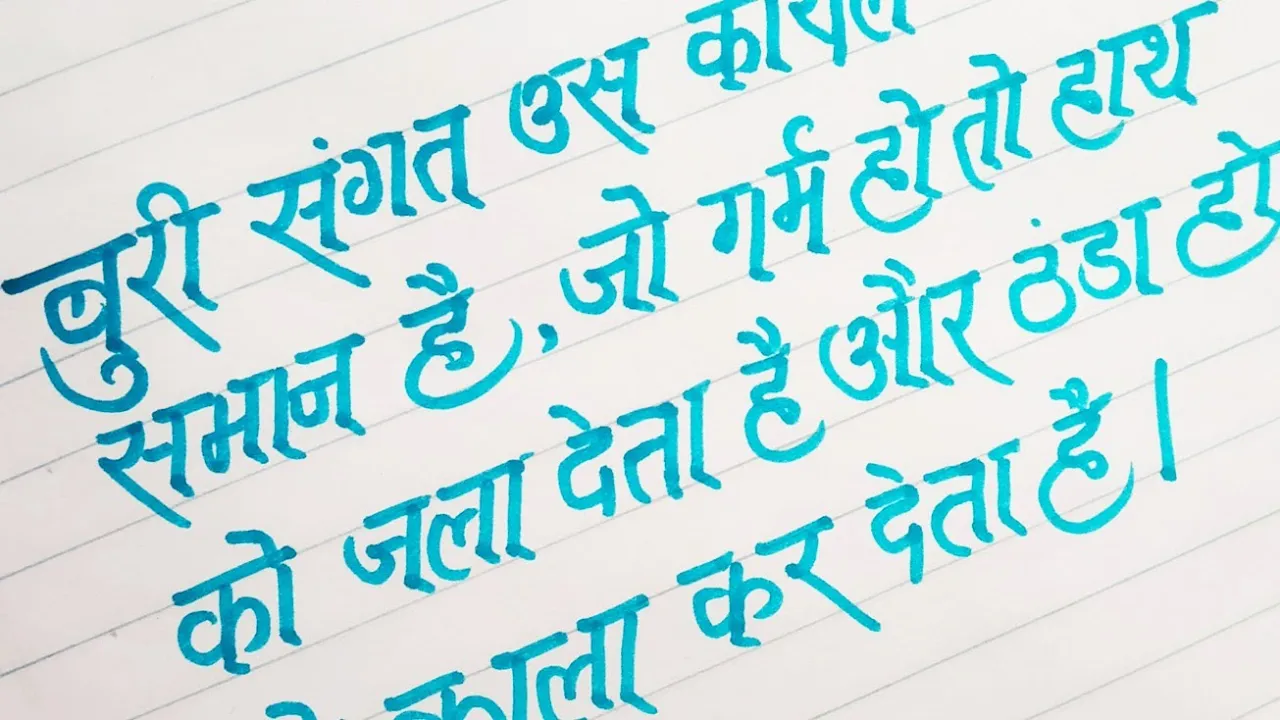 बुरी संगत उस कोयले
समान है, जो गर्म हो तो हाथ
को जला देता है और ठंडा हो
काला कर देता है।